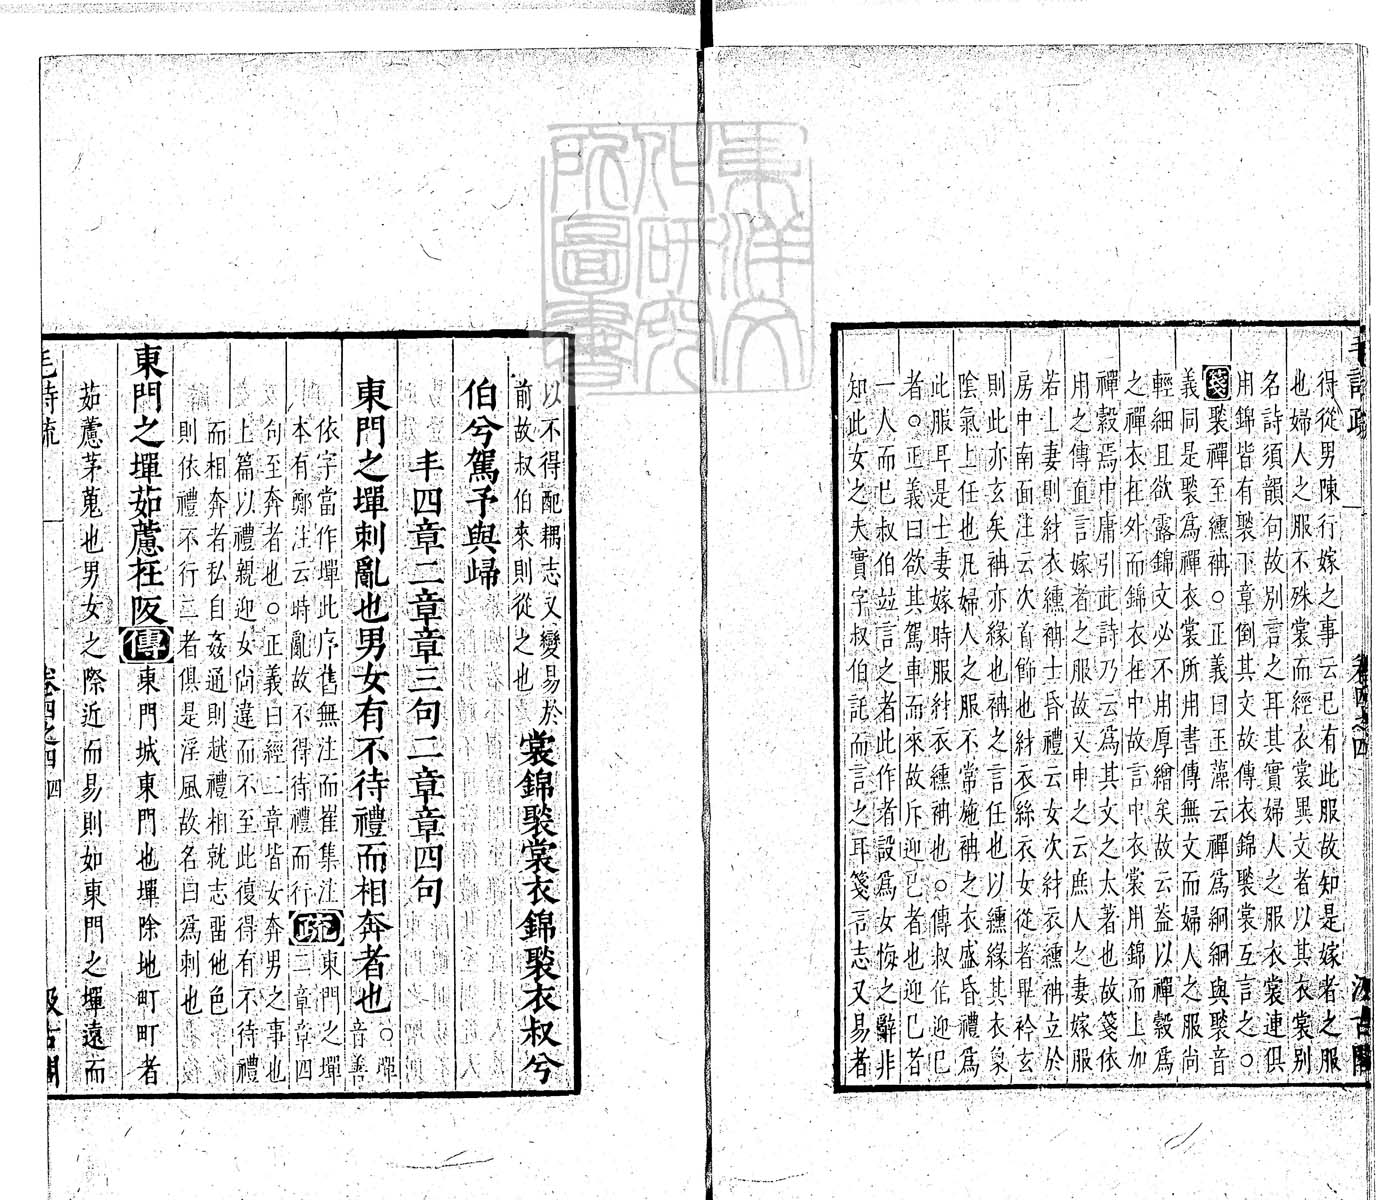 得從男陳行嫁之事云已有此服故知是嫁者之服
也婦人之服不殊裳而經衣裳異文者以其衣裳別
名詩須韻句故別言之耳其實婦人之服衣裳連俱
用錦皆有褧下章倒其文故傳衣錦褧裳互言之○
箋褧襌至纁袡○正義曰玉藻云襌爲絅絅與褧音
義同是褧爲襌衣裳所用書傳無文而婦人之服尚
輕細且欲露錦文必不用厚繒矣故云葢以襌縠爲
之襌衣在外而錦衣在中故言中衣裳用錦而上加
襌縠焉中庸引此詩乃云爲其文之太著也故箋依
用之傳直言嫁者之服故又申之云庶人之妻嫁服
若士妻則紂衣纁袡士昏禮云女次紂衣纁袡立於
房中南面注云次首飾也紂衣絲衣女從者畢袗玄
則此亦玄矣袡亦緣也袡之言任也以纁緣其衣象
陰氣上任也凡婦人之服不常施袡之衣盛昏禮爲
此服耳是士妻嫁時服紂衣纁袡也○傳叔伯迎已
者○正義曰欲其駕車而來故斥迎已者也迎已者
一人而已叔伯竝言之者此作者設爲女悔之辭非
知此女之夫實字叔伯託而言之耳箋言志又易者
以不得配耦志又變易於
前故叔伯來則從之也
裳錦褧裳衣錦褧衣叔兮
伯兮駕予與歸
丰四章二章章三句二章章四句
東門之墠刺亂也男女有不待禮而相奔者也
○墠
音善
依字當作墠此序舊無注而崔集注
本有鄭注云時亂故不得待禮而行
疏
東門之墠
二章章四
句至奔者也○正義曰經二章皆女奔男之事也
上篇以禮親迎女尚違而不至此復得有不待禮
而相奔者私自姦通則越禮相就志留他色
則依禮不行二者俱是浮風故名曰爲刺也
東門之墠茹藘在阪
傳
東門城東門也墠除地町町者
茹藘茅蒐也男女之際近而易則如東門之墠遠而
毛詩疏
卷四之四
四
汲古閣